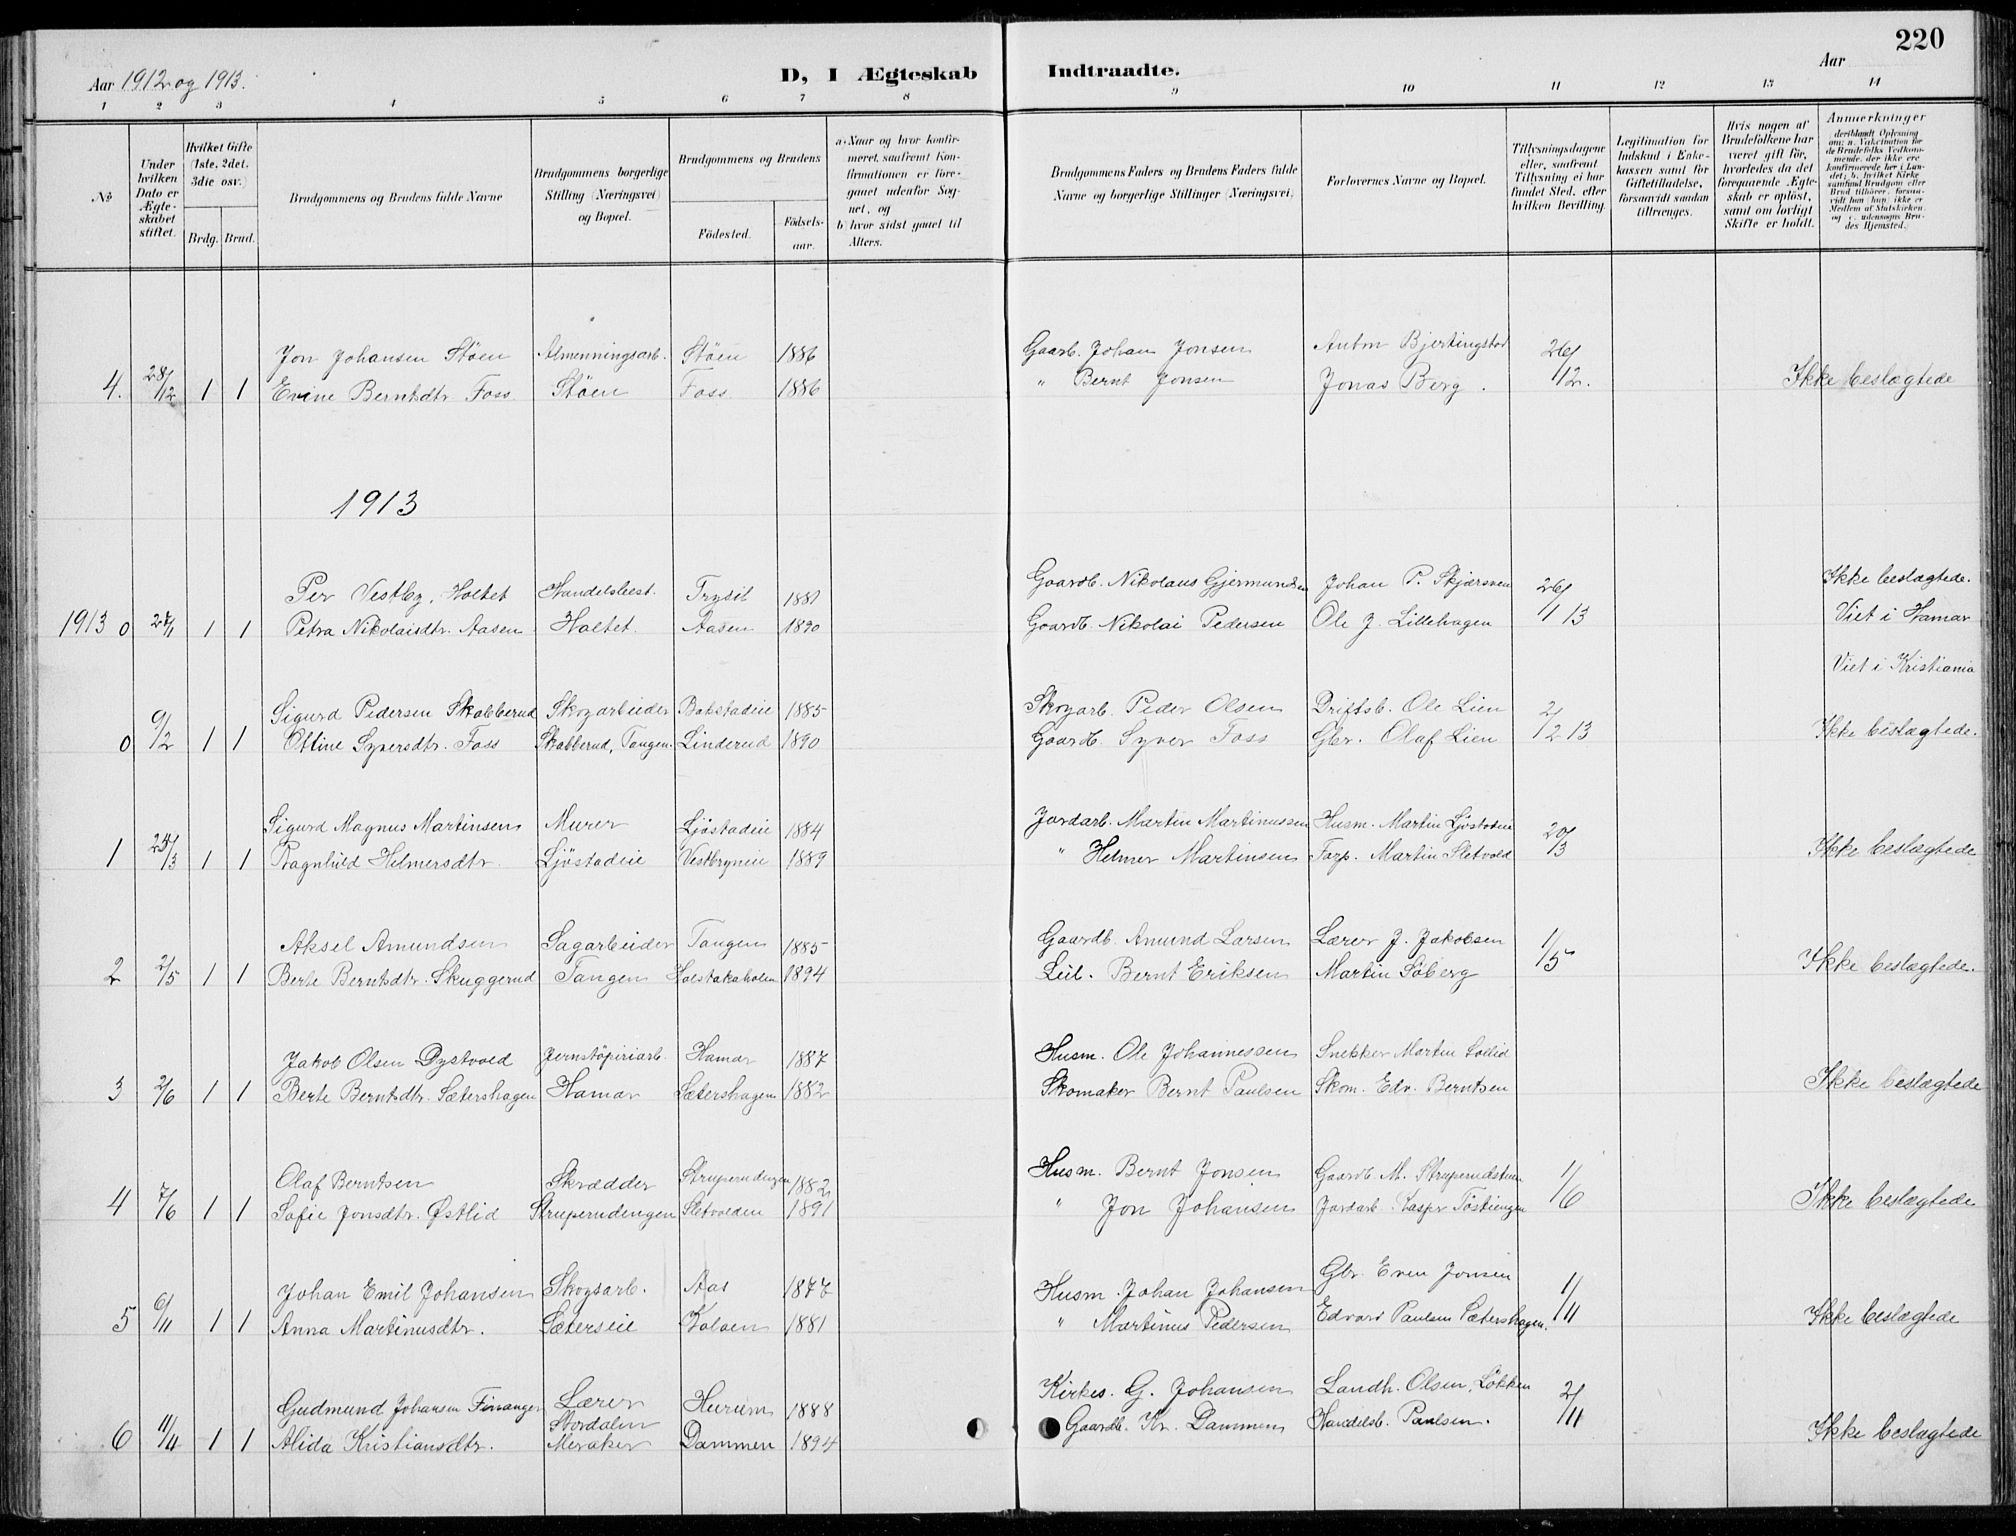 220
Aar 1912 og 1913.
D, I Ægteskab Indtraadte.
Aar
1 2 3 4 5 6 7 8 9 10 11 12 13 14
No
Under hvilken Dato er Ægteskabet stiftet.
Hvilket Gifte (1ste, 2det, 3die osv.)
Brdg. Brud.
Brudgommens og Brudens fulde Navne
Brudgommens borgerlige Stilling (Næringsvei) og Bopæl.
Brudgommens og Brudens
Fødested.
Fødselsaar.
a. Naar og hvor konfirmeret, saafremt Konfirmationen er foregaaet udenfor Sognet, og
b. hvor sidst gaaet til Alters.
Brudgommens Faders og Brudens Faders fulde Navne og borgerlige Stillinger (Næringsvei).
Forlovernes Navne og Bopæl.
Tillysningsdagene eller, saafremt Tillysning ei har fundet Sted, efter hvilken Bevilling.
Legitimation for Indskud i Enkekassen samt for Giftetilladelse, forsaavidt saadan tiltrænges.
Hvis nogen af Brudefolkene har været gift før, hvorledes da det foregaaende Ægteskab er opløst, samt om lovligt Skifte er holdt.
Anmerkninger
Jon Johansen Støen Almenningsarb. Støen 1886 Gaarb. Johan Jonsen Anton Bjertingstad 26/
4. 28/12 1 1 Evine Berntsdtr Foss Støen Foss 1886 " Bernt Jonsen Jonas Berg. 12. Ikke beslægtede
1913
Per Vestby, Holtet Handelsbest. Trysil 1881 Gaardb. Nikolaus Gjermundsen Johan P. Skjærsven 26/ Ikke beslægtede.
1913 0 27/1 1 1 Petra Nikolaisdtr. Aasen Holtet. Aasen 1890 Gaardb. Nikolai Pedersen Ole J. Lillehagen 1 13 Viet i Hamar
Viet i Kristiania
Sigurd Pedersen Skabberud Skogarbeider Bakstadeie 1885 Skogarb. Peder Olsen Driftsb. Ole Lien 2/
0 9/2 1 1 Ottine Syversdtr. Foss Skabberud, Tangen. Linderud 1890 Gaardb. Syver Foss Gbr. Olaf Lien 2 13 Ikke beslægtede.
Sigurd Magnus Martinsen Murer Ljøstadeie 1884 Jordarb. Martin Martinussen Husm. Martin Ljøstadeie 20/
1 25/3 1 1 Ragnhild Helmersdtr. Ljøstadeie Vestbryneie 1889 " Helmer Martinsen Torp. Martin Sletvold 3 Ikke beslægtede
Aksel Amundsen Sagarbeider Tangen 1885 Gaardb. Amund Larsen Lærer J. Jakobsen 1/
2 2/5 1 1 Berte Berntsdtr. Skuggerud Tangen Holstakaholen 1894 Leil. Bernt Eriksen Martin Søberg 5 Ikke beslægtede.
Jakob Olsen Dystvold Jernstøpiriarb. Hamar 1887 Husm. Ole Johannessen Snekker Martin Sollid
3 2/6 1 1 Berte Berntsdtr. Sætershagen Hamar Sætershagen 1882 Skomaker Bernt Paulsen Skom. Edv. Berntsen Ikke beslægtede
Olaf Berntsen Skrædder Struperudengen 1882 Husm. Bernt Jonsen Gaardb. M. Struperudstuen 1/
4 7/6 1 1 Sofie Jonsdtr. Østlid Struperudengen Sletvolden 1891 " Jon Johansen Jordarb. Kasper Tøstiengen 6 Ikke beslægtede
Johan Emil Johansen Skogsarb. Aas 1877 Husm. Johan Johansen Gbr. Even Jonsen 1/
5 6/11 1 1 Anna Martinusdtr. Sæterseie Kolaen 1881 " Martinus Pedersen Edvard Paulsen Sætershagen. 11 Ikke beslægtede
Gudmund Johansen Finanger Lærer Hurum 1888 Kirkes. G. Johansen Landh. Olsen, Løkken 2/
Stordalen
6 11/4 1 1 Alida Kristiansdtr. Meraker Dammen 1894 Gaardb. Kr. Dammen Handelsb. Paulsen. 11 Ikke beslægtede